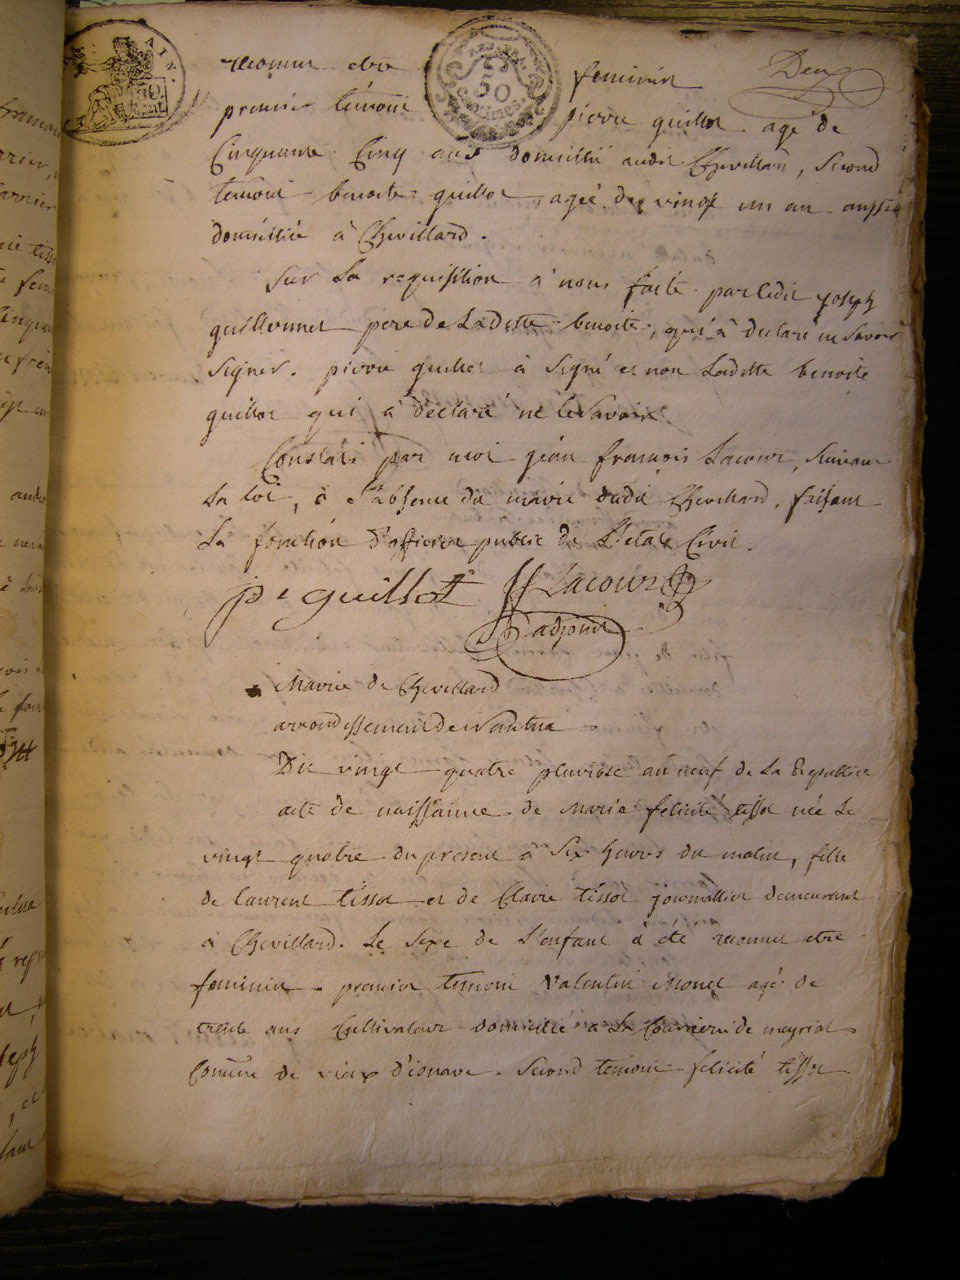 AIN.
50
CENTIMES.
Deux
reconnu etre feminin
premier témoin pierre guillot agé de
Cinquante Cinq ans domicilié audit Chevillard, second
temoin benoite guillot agée de vingt un an aussi
domiciliée à Chevillard.
Sur La requisition à nous faite par ledit joseph
guillermet pere de Laditte benoite, qui à declaré ne savoir
signer. pierre guillot à signé et non Laditte benoite
guillot qui à declaré ne le savoir
Constaté par moi jean françois Lacour, suivant
La loi, à l'absence du maire dudit Chevillard, faisant
La fonction d'officier public de L'etat Civil.
pe guillot Lacour
adjoint
Mairie de Chevillard
arrondissement de Nantua
Du vingt quatre pluviose an neuf de La Republique
acte de naissance de Marie felicité tissot née Le
vingt quatre du present à Six heures du matin, fille
de laurent tissot et de Claire tissot journallier demeurant
à Chevillard. Le Sexe de L'enfant à été reconnu etre
feminin. premier temoin Valentin agé de
trente ans Cultivateur domicilié à La de meyriat
Comune de vieux d'isnave. Second temoin felicité tissot